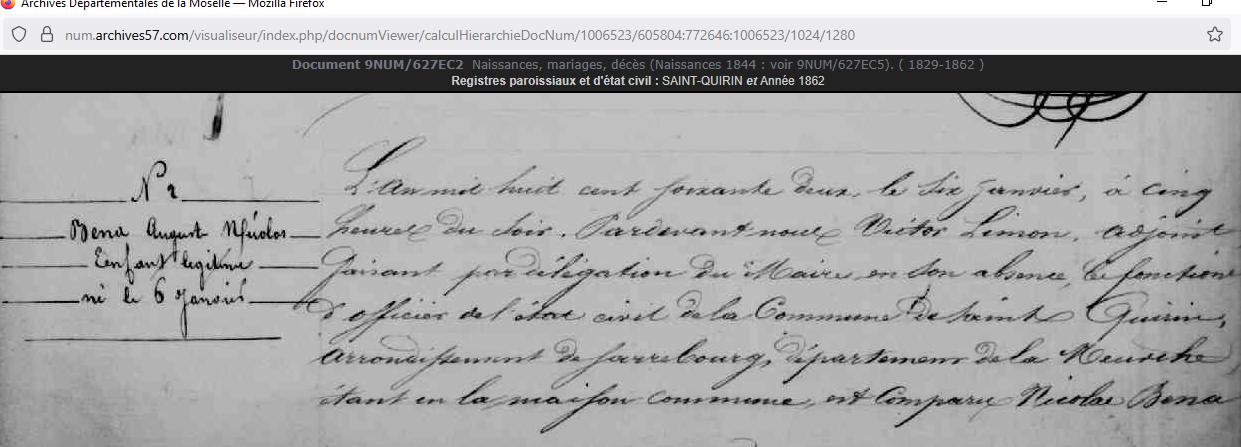 Archives Départementales de la Moselle — Mozilla Firefox
num.archives57.com/visualiseur/index.php/docnumViewer/calculHierarchieDocNum/1006523/605804:772646:1006523/1024/1280
Document 9NUM/627EC2 Naissances, mariages, décès (Naissances 1844 : voir 9NUM/627EC5). ( 1829-1862 )
Registres paroissiaux et d'état civil : SAINT-QUIRIN et Année 1862
N 2
Bena August Nicolas
Eenfant legitime
né le 6 Janvier
L'an mil huit cent soixante deux, le six janvier, à cinq
heures du soir, Pardevant nous Victor Limon, adjoint
faisant par délégation du Maire en son absence, les fonctions
d'officier de l'état civil de la Commune de Saint Quirin,
arrondissement de Sarrebourg, département de la Meurthe,
étant en la maison commune, est Comparu Nicolas Bena